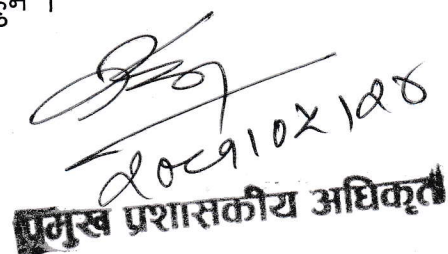 हुन ।
२०८१।०५।२४
प्रमुख प्रशासकीय अधिकृत